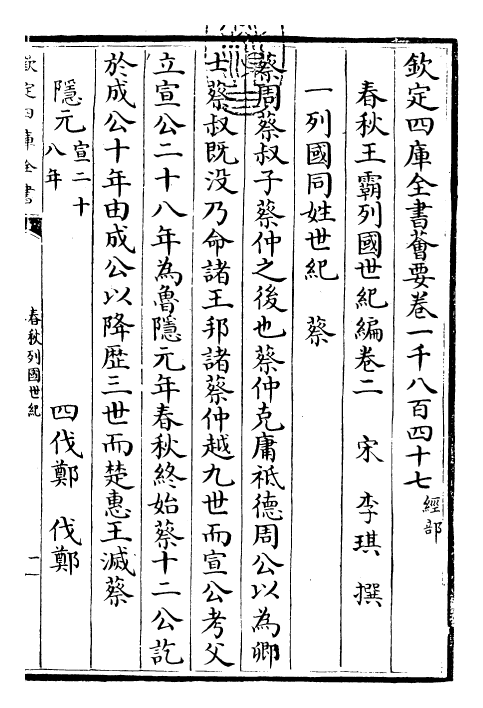 欽定四庫全書薈要卷一千八百四十七 經部
春秋王霸列國世紀編卷二 宋 李琪 撰
一列國同姓世紀 蔡
蔡周蔡叔子蔡仲之後也蔡仲克庸祗德周公以為卿
士蔡叔既没乃命諸王邦諸蔡仲越九世而宣公考父
立宣公二十八年為魯隱元年春秋終始蔡十二公訖
於成公十年由成公以降歷三世而楚惠王滅蔡
隱元 宣二十八年 四伐鄭 伐鄭
欽定四庫全書
春秋列國世紀
一